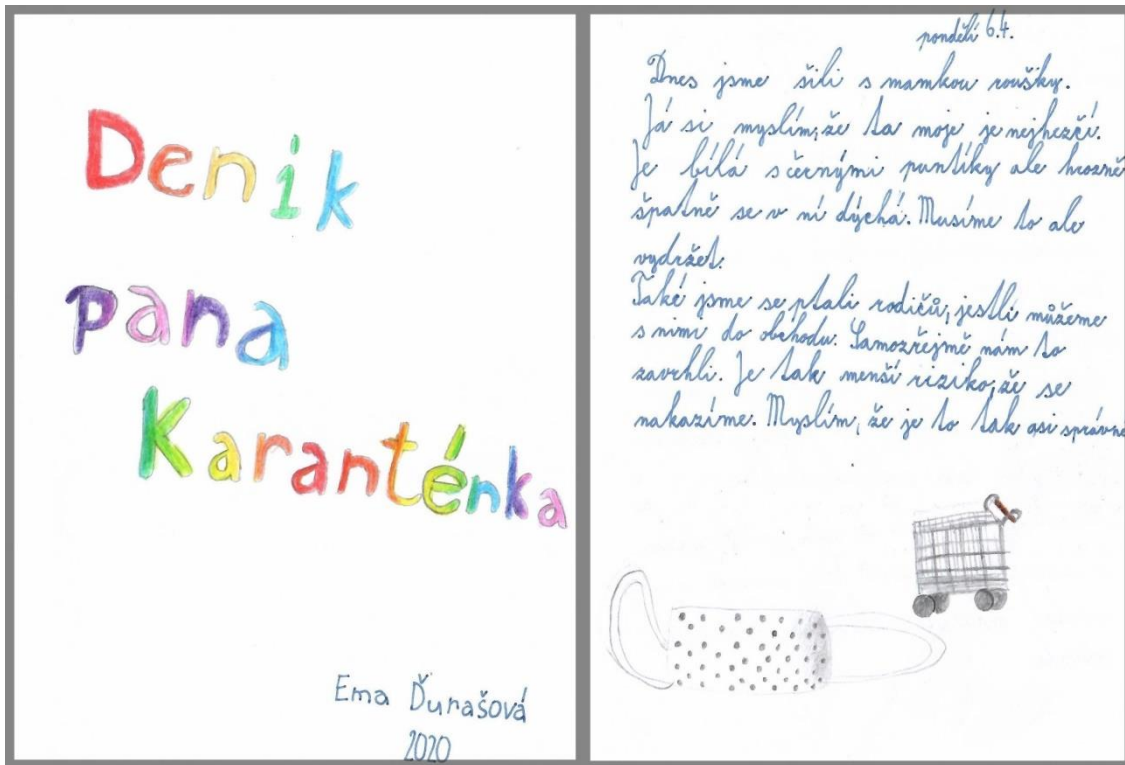 Deník
pana
Karanténka
Ema Ďurašová
2020
pondělí 6.4.
Dnes jsme šili s mamkou roušky.
Já si myslím, že ta moje je nejhezčí.
Je bílá s černými puntíky ale hrozně
špatně se v ní dýchá. Musíme to ale
vydržet.
Také jsme se ptali rodičů, jestli můžeme
s nimi do obchodu. Samozřejmě nám to
zavrhli. Je tak menší riziko, že se
nakazíme. Myslím, že je to tak asi správně